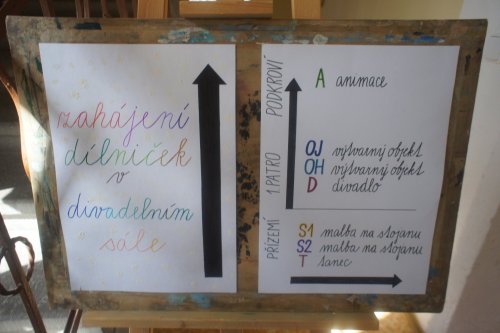 zahájení
dílniček
v
divadelním
sále
PODKROVÍ
A animace
1.PATRO
OJ výtvarný objekt
OH výtvarný objekt
D divadlo
PŘÍZEMÍ
S1 malba na stojanu
S2 malba na stojanu
T tanec